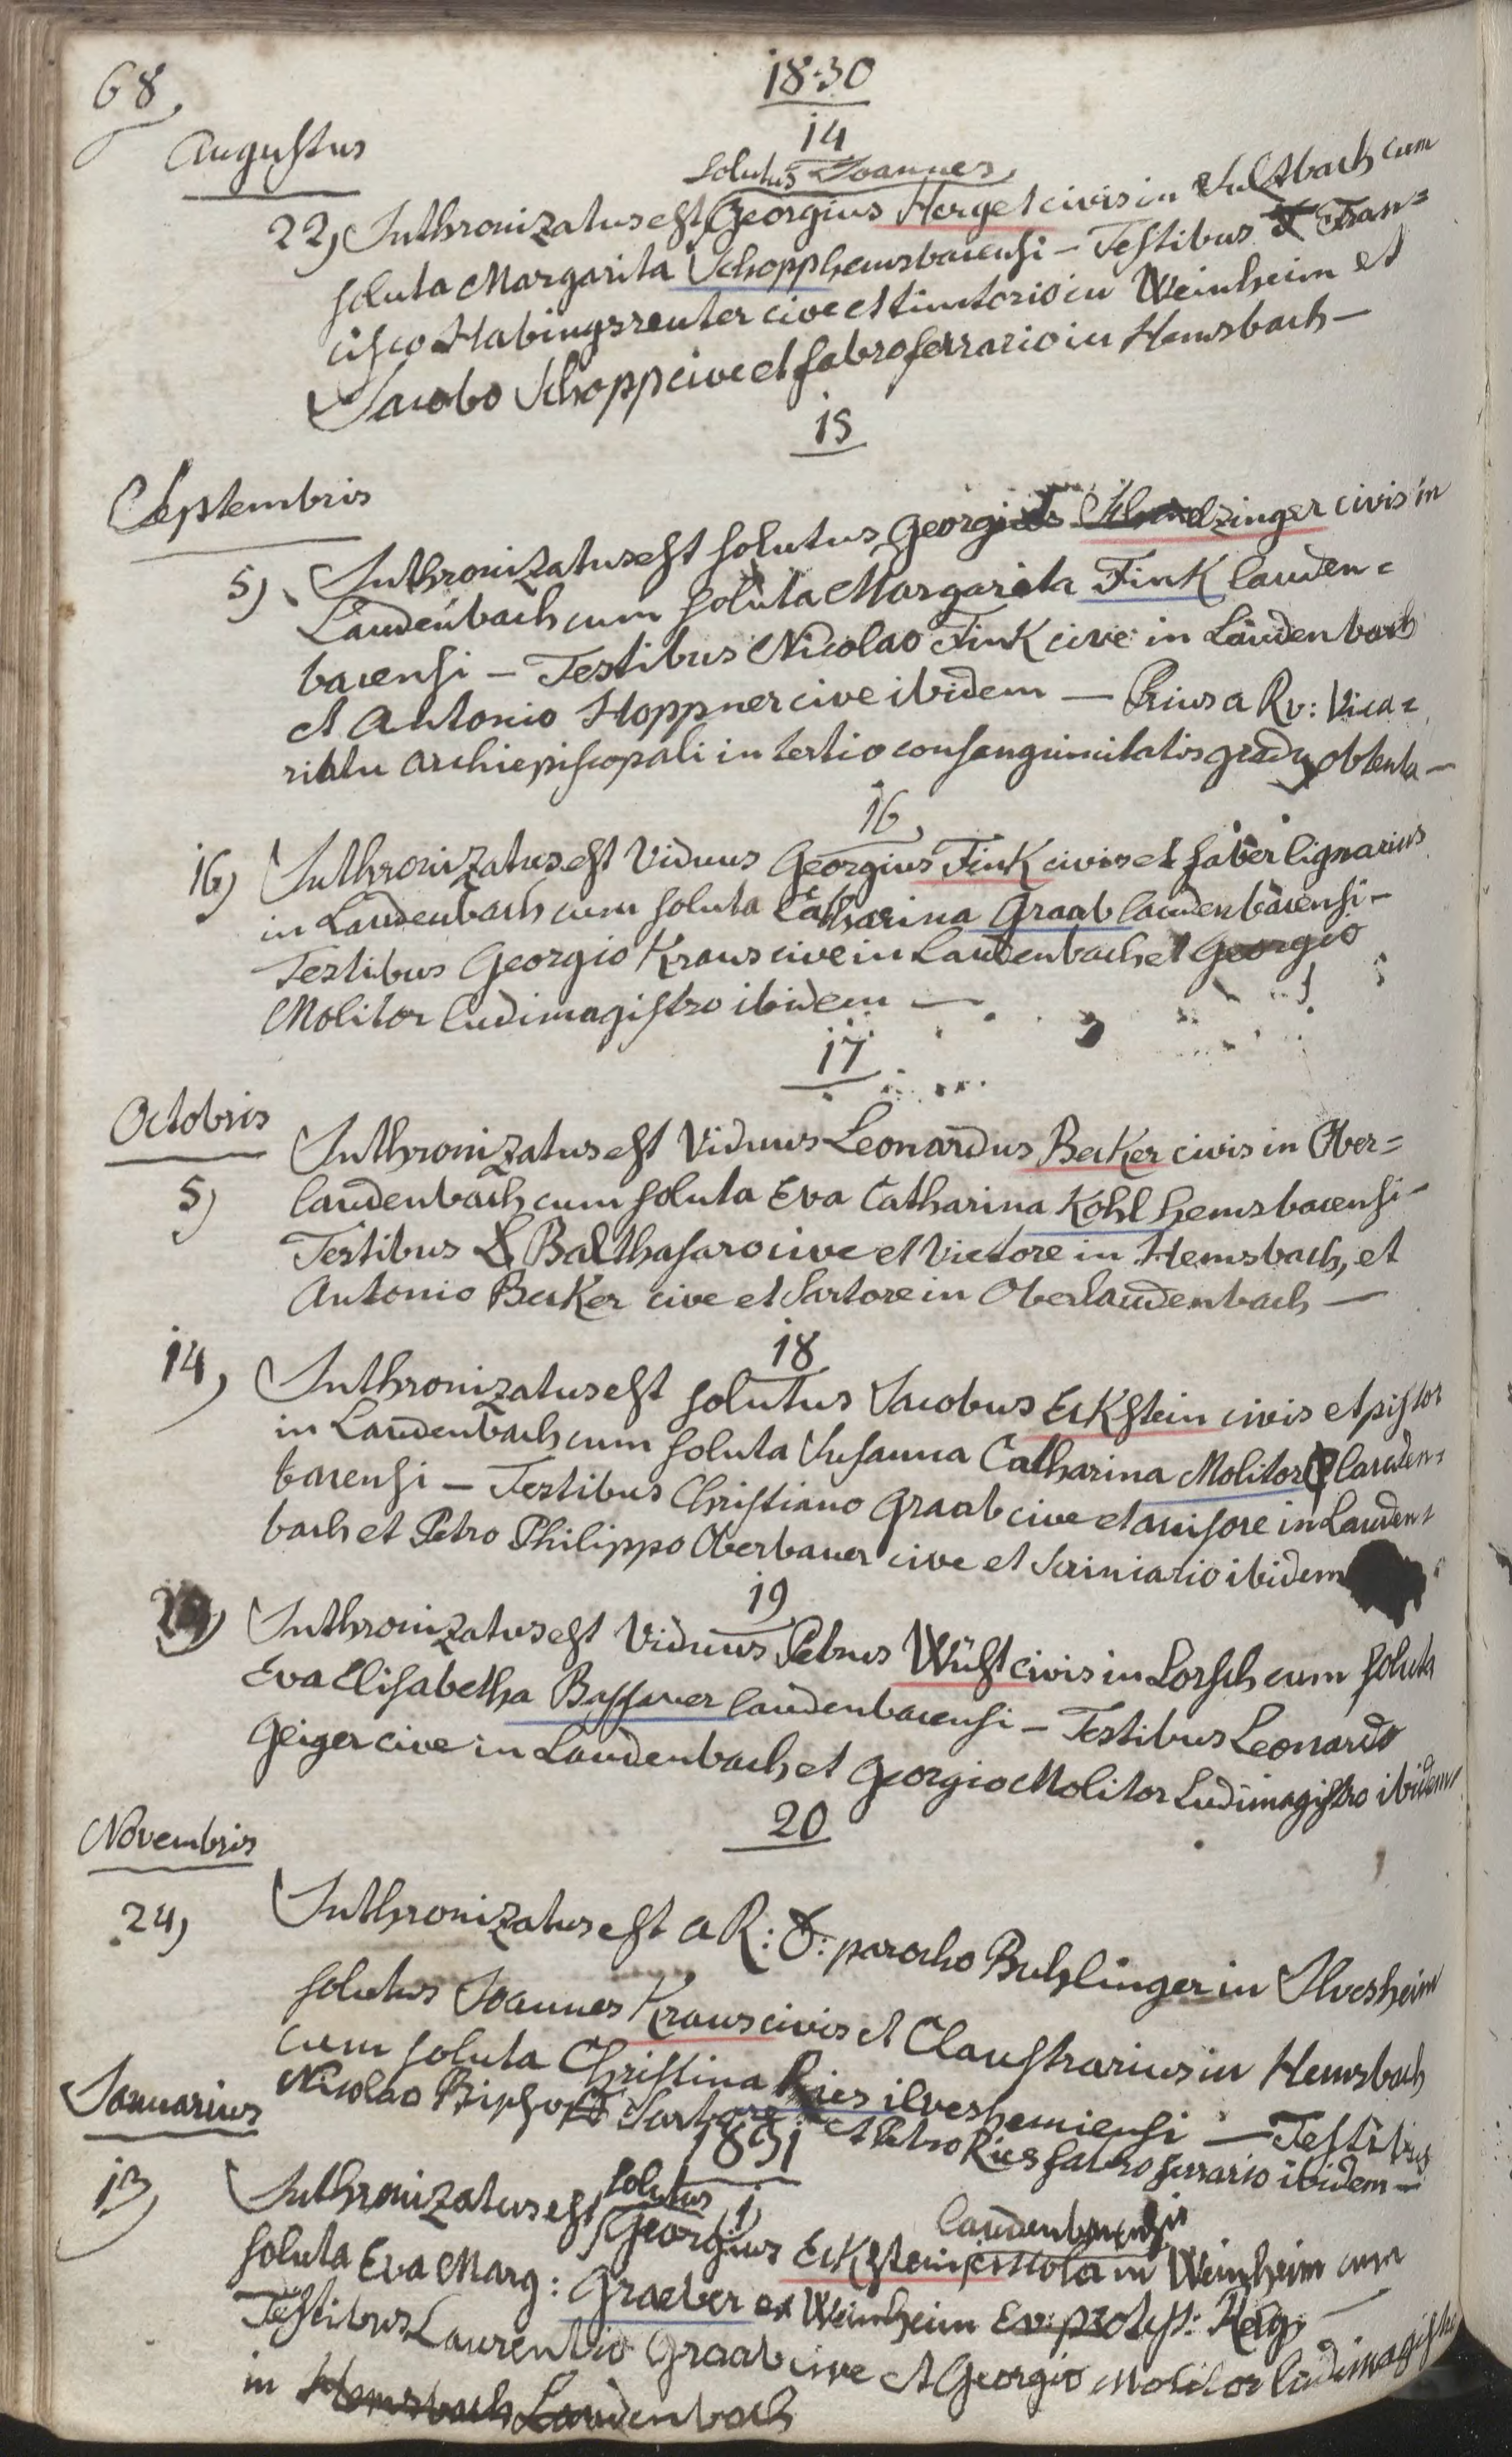 68.
1830
14
Augustus
solutus Joannes
22) Inthronizatus est Georgius Herget civis in Sulzbach cum
soluta Margarita Schopp hemsbacensi – Testibus Fran=
cisco Habingsreuter cive et tinctorio in Weinheim et
Jacobo Schopp cive et fabro ferrario in Hemsbach –
15
Septembris
5) Inthronizatus est solutus Georgius civis in
Laudenbach cum soluta Margarita Fink lauden=
bacensi – Testibus Nicolao Fink cive in Laudenbach
et Antonio Hoppner cive ibidem – Prius a Rv: Vica=
riatu archiepiscopali in tertio consanguinitatis gradu obtenta –
16
16) Inthronizatus est Viduus Georgius Fink civis et faber lignarius
in Laudenbach cum soluta Catharina Graab laudenbacensi –
Testibus Georgio Kraus cive in Laudenbach et Georgio
Molitor ludimagistro ibidem –
17
Octobris
Inthronizatus est Viduus Leonardus Becker civis in Ober=
5) laudenbach cum soluta Eva Catharina Kohl hemsbacensi –
Testibus Balthasaro cive et Victore in Hemsbach, et
Antonio Becker cive et Sartore in Oberlaudenbach –
18
14) Inthronizatus est solutus Jacobus Eckstein civis et pistor
in Laudenbach cum soluta Susanna Catharina Molitor lauden=
bacensi – Testibus Christiano Graab cive et accisore in Lauden=
bach et Petro Philippo Oberbauer cive et Scriniario ibidem
19
Inthronizatus est Viduus Petrus Wüst civis in Lorsch cum soluta
Eva Elisabetha Bassauer laudenbacensi – Testibus Leonardo
Geiger cive in Laudenbach et Georgio Molitor Ludimagistro ibidem
20
Novembris
24) Inthronizatus est a R: D: parocho Buhlinger in Ilvesheim
solutus Joannes Kraus civis et Claustrarius in Hemsbach
cum soluta Christina Ries ilveshemiensi – Testibus
Nicolao Sartore et Petro Ries fabro ferrario ibidem –
Januarius
1831
1,
solutus
laudenbacensis
13) Inthronizatus est Georgius Eckstein incola in Weinheim cum
soluta Eva Marg: Graeber ex Weinheim Ev: protest: Relig.
Testibus Laurentio Graab cive et Georgio Molitor ludimagistro
in Hemsbach Laudenbach